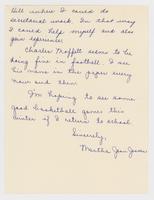 Hill where I could do
secretarial work. In that way
I could help myself and also
gain experience.
Charles Moffitt seems to be
doing fine in football. I see
his name in the paper every
now and then.
I'm hoping to see some
good basketball games this
winter if I return to school.
Sincerely,
Martha Jean